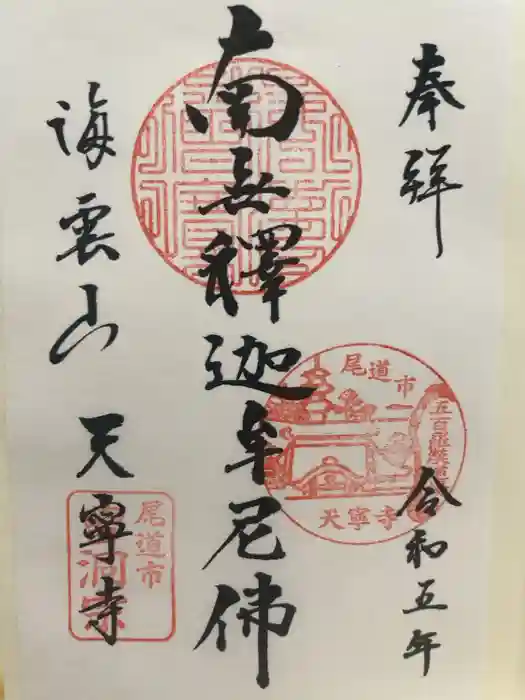 奉拝
令和五年
南無釋迦牟尼佛
海雲山 天寧寺
尾道市
五百羅漢
天寧寺
尾道市